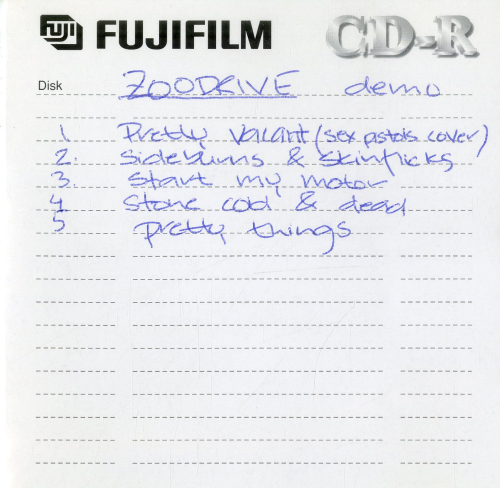 FUJI FUJIFILM CD-R
Disk ZOODRIVE demo
1 Pretty Vacant (sex pistols cover)
2. Sideburns & Skinflicks
3. Start my motor
4 Stone cold & dead
5 pretty things